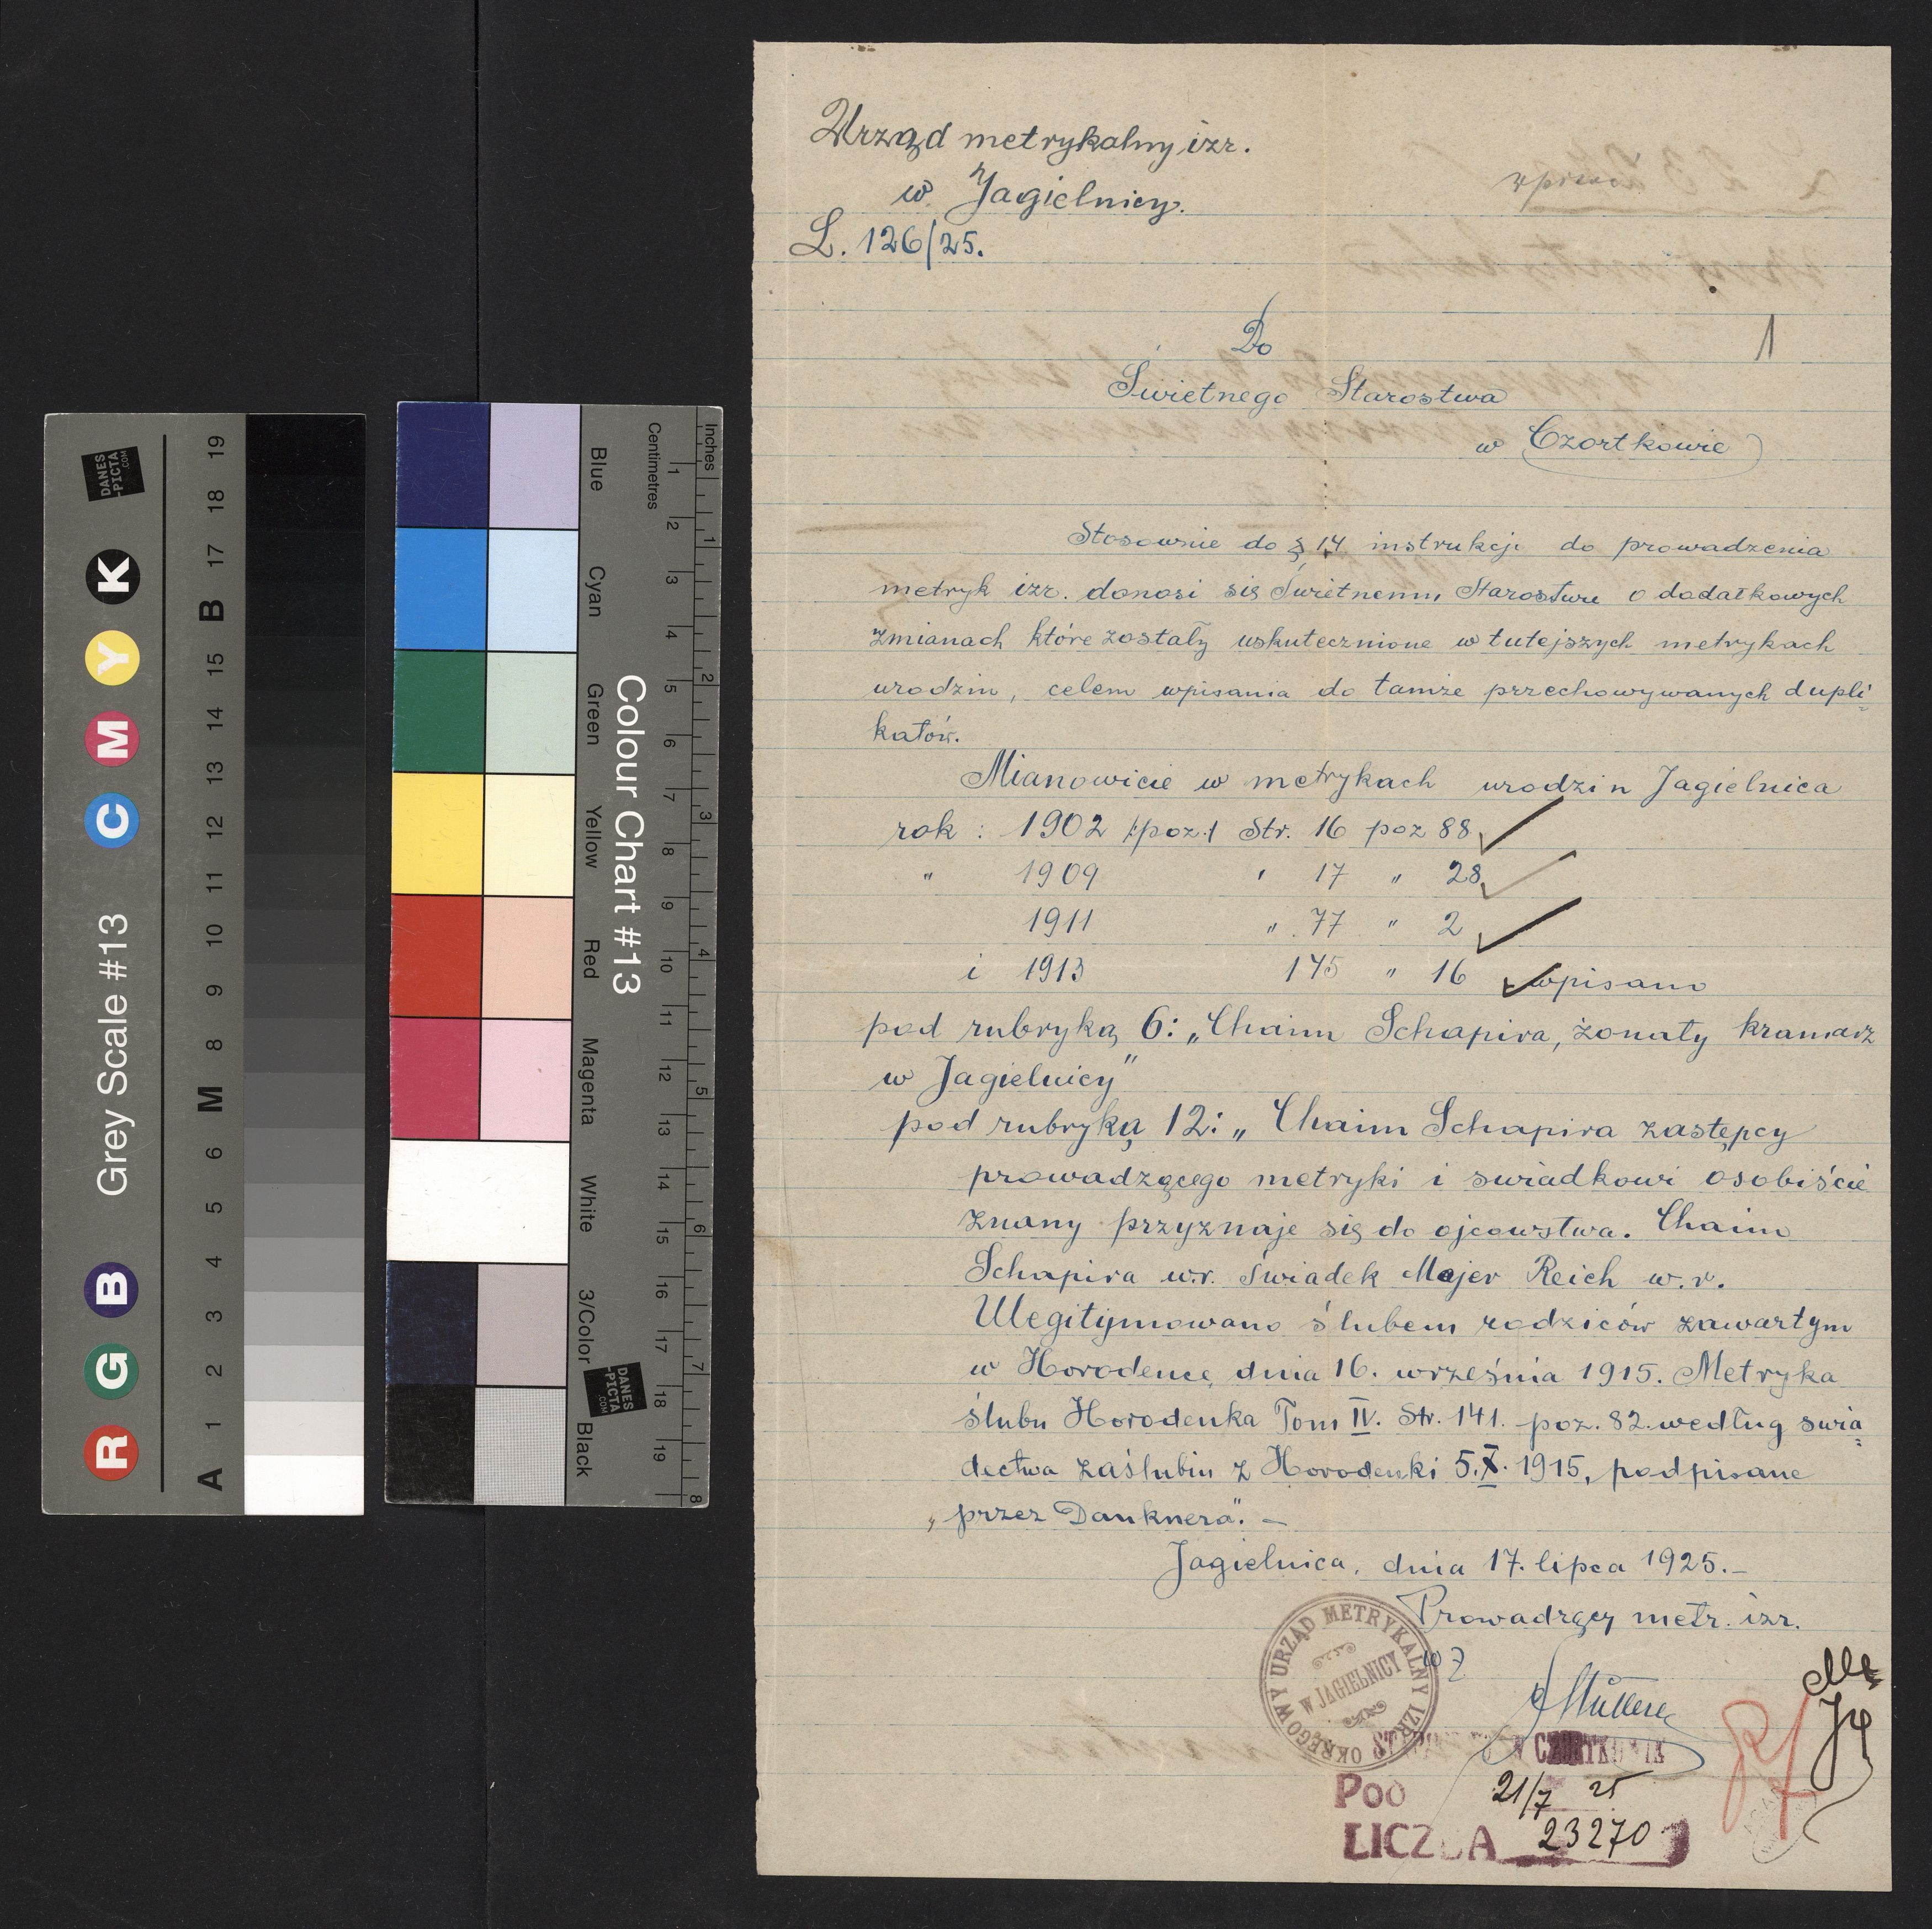 Urząd metrykalny izr.
w Jagielnicy.
L. 126/25.
1
Do
Świetnego Starostwa
w Czortkowie
Stosownie do § 14 instrukcji do prowadzenia
metryk izr. donosi się Świetnemu Starostwu o dodatkowych
zmianach które zostały uskutecznione w tutejszych metrykach
urodzin, celem wpisania do tamże przechowywanych dupli-
katów.
Mianowicie w metrykach urodzin Jagielnica
rok : 1902 Str. 16 poz 88
" 1909 " 17 " 28
1911 " 77 " 2
i 1913 145 " 16 wpisano
pod rubryką 6: „Chaim Schapira, żonaty kramarz
w Jagielnicy"
pod rubryką 12: „Chaim Schapira zastępcy
prowadzącego metryki i swiadkowi osobiście
znany przyznaje się do ojcowstwa. Chaim
Schapira w.r. świadek Majer Reich w.r.
Ulegitymowano ślubem rodziców zawartym
w Horodence dnia 16. września 1915. Metryka
ślubu Horodenka Tom IV. Str. 141. poz. 82. według swia-
dectwa zaślubin z Horodenki 5.X.1915, podpisane
„przez Danknera". –
Jagielnica, dnia 17. lipca 1925.–
Prowadzący metr. izr.
wz
OKRĘGOWY URZĄD METRYKALNY IZR.
W JAGIELNICY
W CZORTKOWIE
21/7 25
LICZBA 23270
Grey Scale #13
R G B C M Y K
A 1 2 3 4 5 6 M 8 9 10 11 12 13 14 15 B 17 18 19
DANES
-PICTA
.COM
Colour Chart #13
Blue Cyan Green Yellow Red Magenta White 3/Color Black
Centimetres
1 2 3 4 5 6 7 8 9 10 11 12 13 14 15 16 17 18 19
Inches
1 2 3 4 5 6 7 8
DANES
-PICTA
.COM